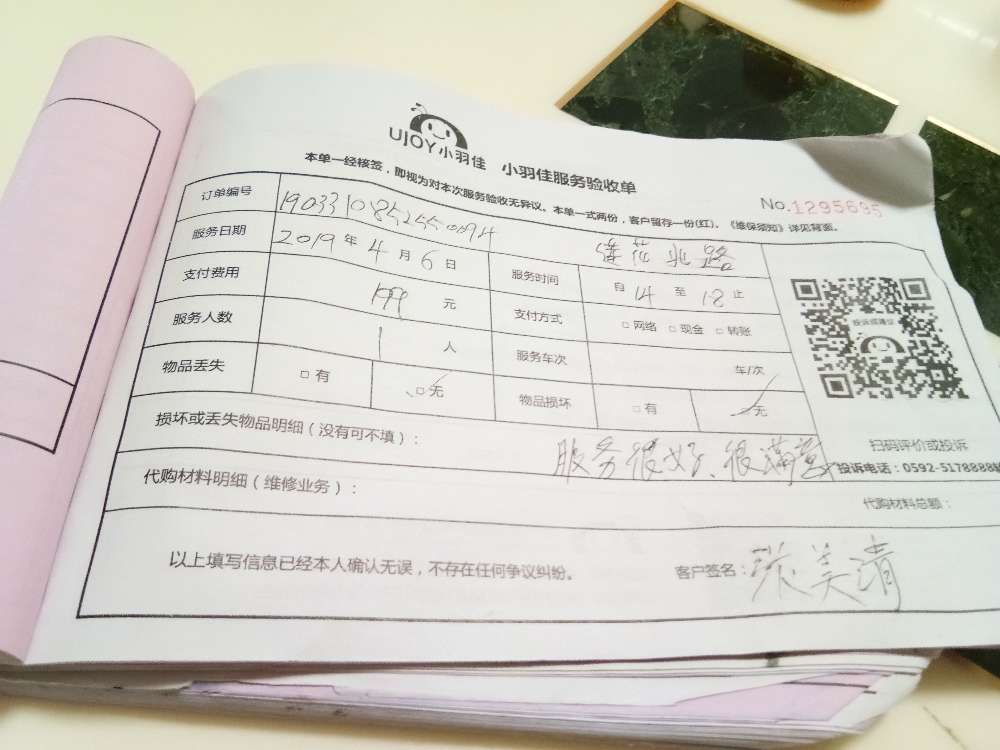 UJOY小羽佳 小羽佳服务验收单
No.1295695
本单一经核签，即视为对本次服务验收无异议。本单一式两份，客户留存一份(红)。《维保须知》详见背面。
订单编号 莲花北路
服务日期 2019年4月6日 服务时间 自14至18止
支付费用 199元 支付方式 □网络 □现金 □转账
服务人数 1人 服务车次 车/次
物品丢失 □有 □无 物品损坏 □有 □无
投诉或建议
扫码评价或投诉
损坏或丢失物品明细（没有可不填）： 服务很好、很满意
投诉电话：0592-5178888
代购材料明细（维修业务）： 代购材料总额：
以上填写信息已经本人确认无误，不存在任何争议纠纷。 客户签名：张美清